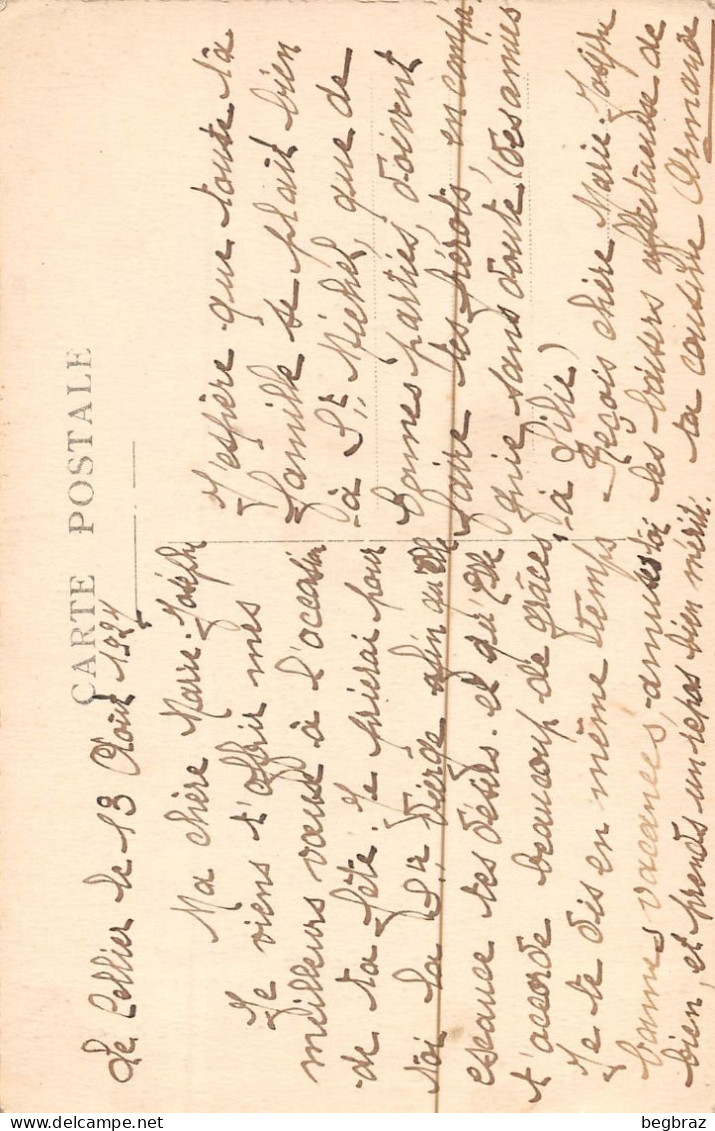 CARTE POSTALE
Le Cellier le 13 Août 1924
Ma chère Marie-Joseph
Je viens t'offrir mes
meilleurs vœux à l'occasion
de ta fête. Je prierai pour
toi la Ste Vierge afin qu'elle
exauce tes désirs. et qu'elle
t'accorde beaucoup de grâces,
Je te dis en même temps
bonnes vacances, amuse-toi
bien, et prends un repos bien mérité.
J'espère que toute la
famille se plaît bien
à St Michel, que de
bonnes parties, doivent
faire les pérots, en compa
gnie sans doute (des amis
à Lilie)
Reçois chère Marie-Joseph
les baisers affectueux de
ta cousine Armande
begbraz